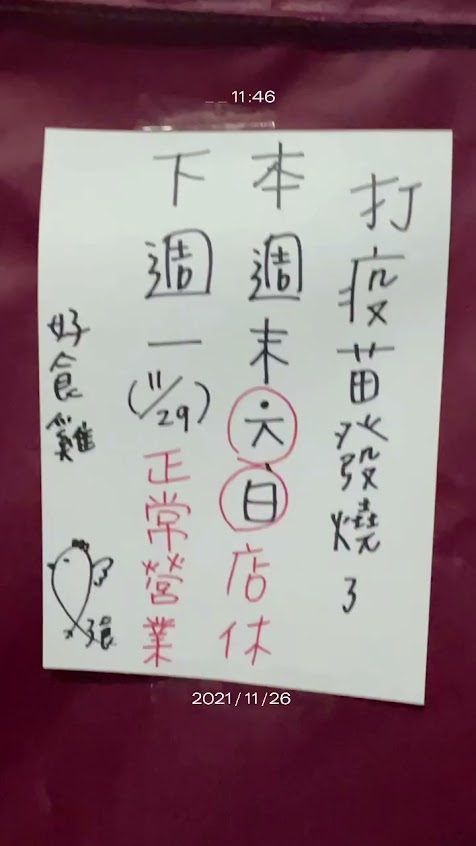 11:46
打疫苗發燒了
本週末六日店休
下週一(11/29)正常營業
好食雞
2021/11/26